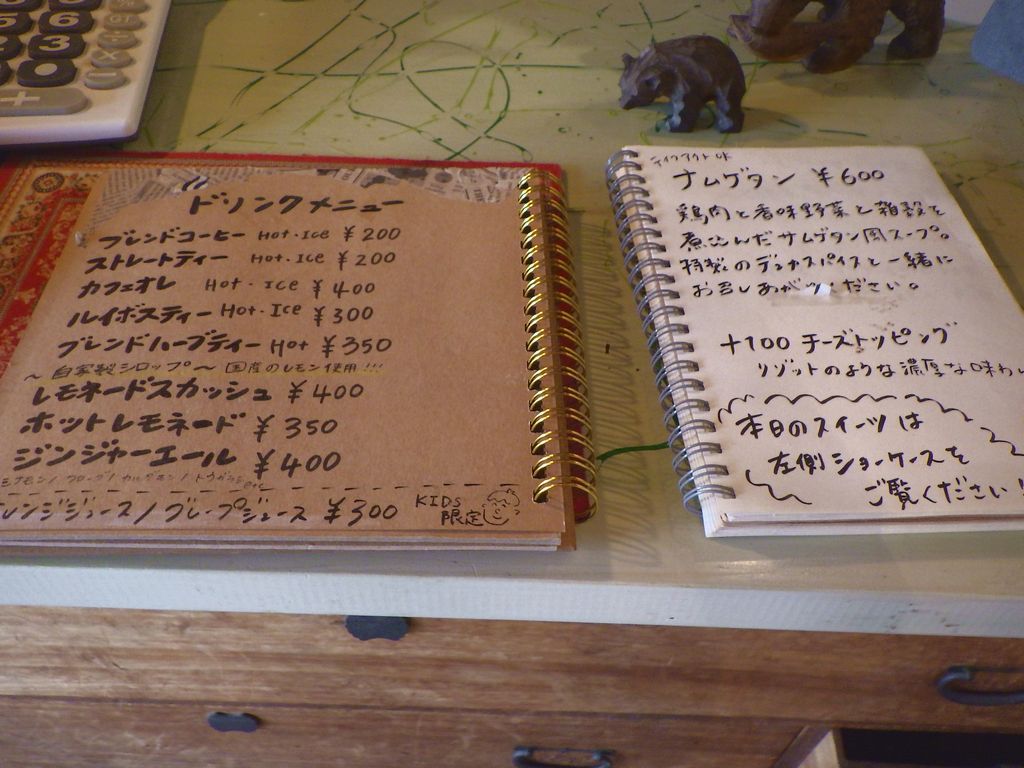 ドリンクメニュー
ブレンドコーヒー Hot・Ice ¥200
ストレートティー Hot・Ice ¥200
カフェオレ Hot・Ice ¥400
ルイボスティー Hot・Ice ¥300
ブレンドハーブティー Hot ¥350
～自家製シロップ～ 国産のレモン使用!!!
レモネードスカッシュ ¥400
ホットレモネード ¥350
ジンジャーエール ¥400
レンジジュース/グレープジュース ¥300 KIDS限定
テイクアウトOK
サムゲタン ¥600
鶏肉と香味野菜と雑穀を
煮込んだサムゲタン風スープ。
特製のデュカスパイスと一緒に
お召しあがりください。
+100 チーズトッピング
リゾットのような濃厚な味わい
本日のスイーツは
左側ショーケースを
ご覧ください!
6 3
0
+